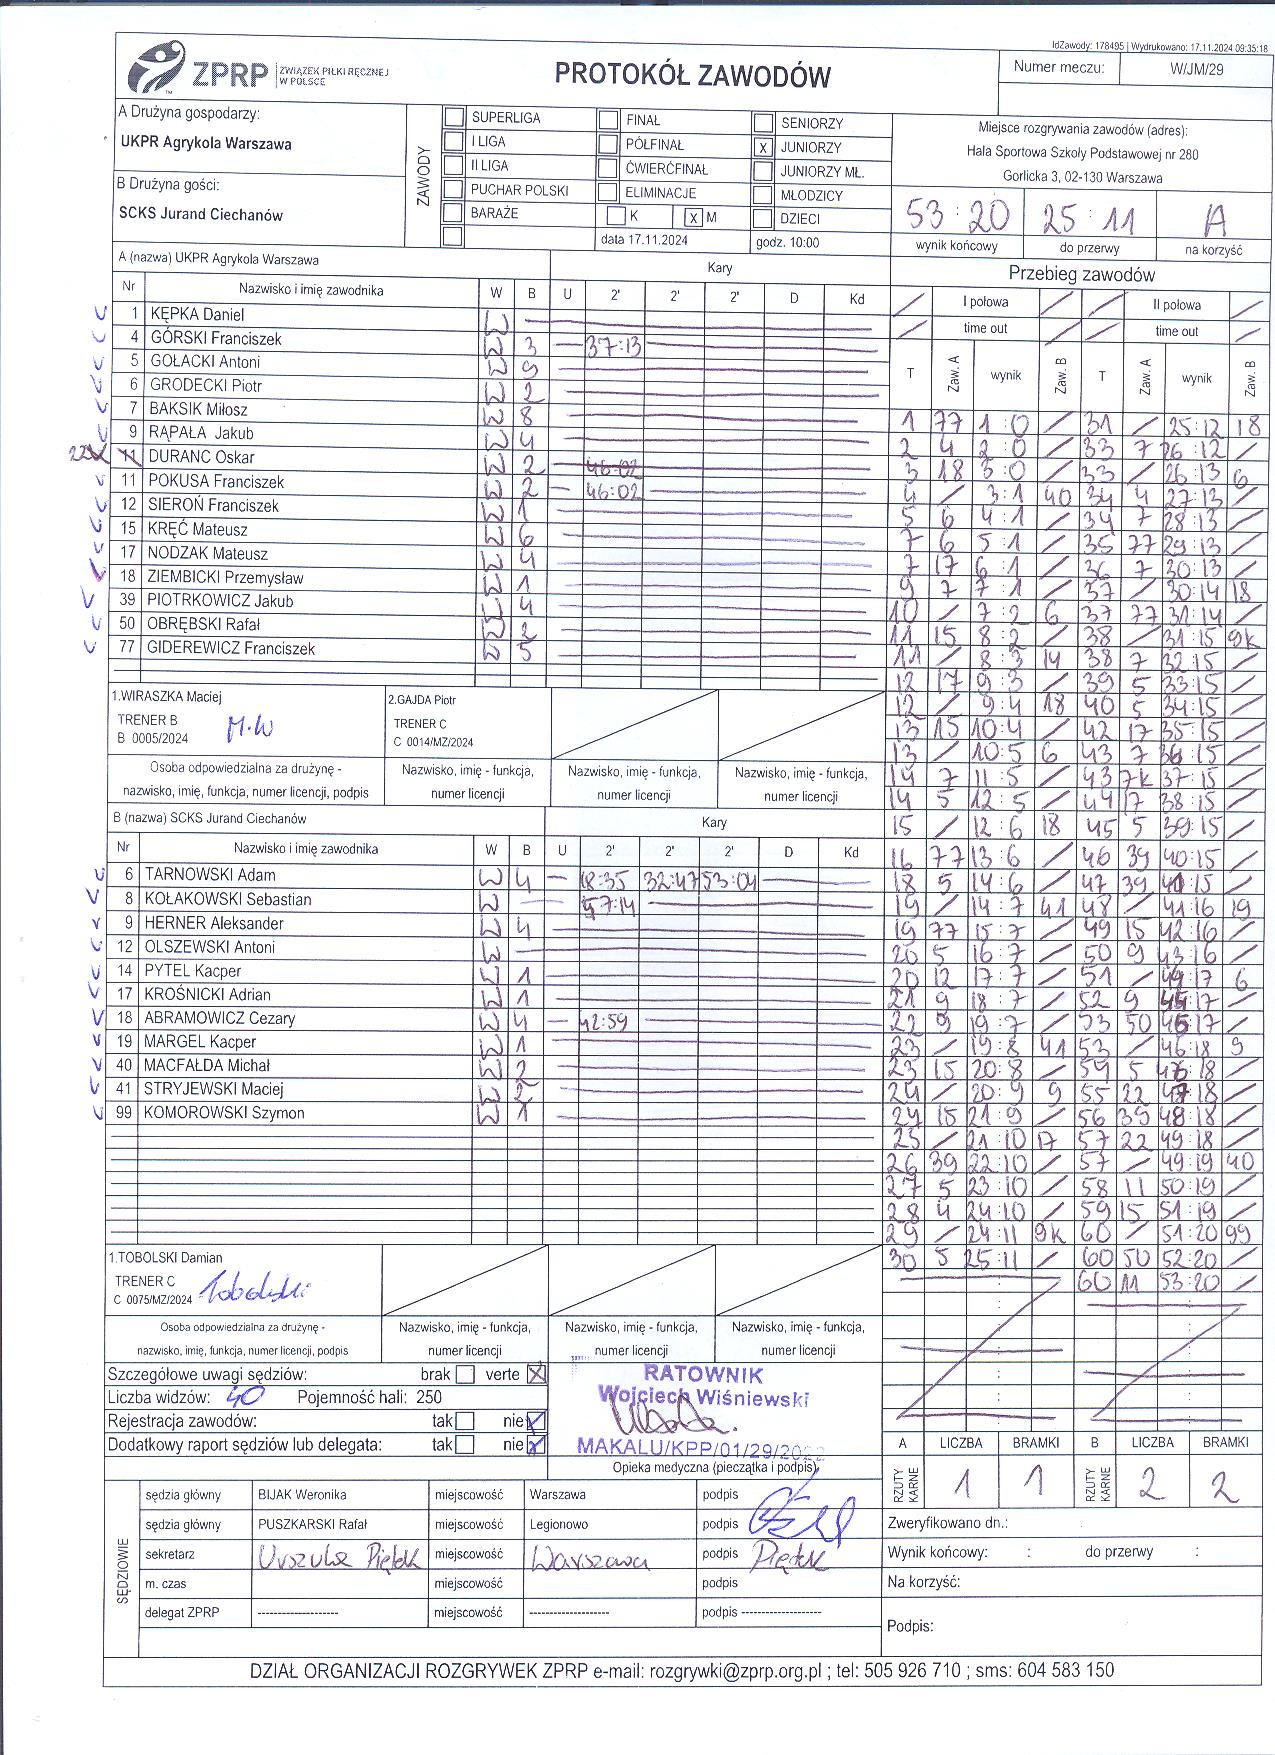 IdZawody: 178495 | Wydrukowano: 17.11.2024 09:35:18
ZPRP ZWIĄZEK PIŁKI RĘCZNEJ W POLSCE
PROTOKÓŁ ZAWODÓW
Numer meczu: W/JM/29
A Drużyna gospodarzy:
UKPR Agrykola Warszawa
B Drużyna gości:
SCKS Jurand Ciechanów
ZAWODY
SUPERLIGA FINAŁ SENIORZY
I LIGA PÓŁFINAŁ x JUNIORZY
II LIGA ĆWIERĆFINAŁ JUNIORZY MŁ.
PUCHAR POLSKI ELIMINACJE MŁODZICY
BARAŻE K x M DZIECI
data 17.11.2024 godz. 10:00
Miejsce rozgrywania zawodów (adres):
Hala Sportowa Szkoły Podstawowej nr 280
Gorlicka 3, 02-130 Warszawa
53:20 25:11 A
wynik końcowy do przerwy na korzyść
A (nazwa) UKPR Agrykola Warszawa Kary
Nr Nazwisko i imię zawodnika W B U 2' 2' 2' D Kd
1 KĘPKA Daniel W
4 GÓRSKI Franciszek W 3 37:13
5 GOŁACKI Antoni W 9
6 GRODECKI Piotr W 2
7 BAKSIK Miłosz W 8
9 RĄPAŁA Jakub W 4
22 11 DURANC Oskar W 2 46:02
11 POKUSA Franciszek W 2 46:02
12 SIEROŃ Franciszek W 1
15 KRĘĆ Mateusz W 6
17 NODZAK Mateusz W 4
18 ZIEMBICKI Przemysław W 1
39 PIOTRKOWICZ Jakub W 4
50 OBRĘBSKI Rafał W 2
77 GIDEREWICZ Franciszek W 5
1.WIRASZKA Maciej
TRENER B
B 0005/2024 M.W
2.GAJDA Piotr
TRENER C
C 0014/MZ/2024
Osoba odpowiedzialna za drużynę - nazwisko, imię, funkcja, numer licencji, podpis
Nazwisko, imię - funkcja, numer licencji
Nazwisko, imię - funkcja, numer licencji
Nazwisko, imię - funkcja, numer licencji
B (nazwa) SCKS Jurand Ciechanów Kary
Nr Nazwisko i imię zawodnika W B U 2' 2' 2' D Kd
6 TARNOWSKI Adam W 4 18:35 32:47 53:04
8 KOŁAKOWSKI Sebastian W 57:14
9 HERNER Aleksander W 4
12 OLSZEWSKI Antoni W
14 PYTEL Kacper W 1
17 KROŚNICKI Adrian W 1
18 ABRAMOWICZ Cezary W 4 42:59
19 MARGEL Kacper W 1
40 MACFAŁDA Michał W 2
41 STRYJEWSKI Maciej W 2
99 KOMOROWSKI Szymon W 1
1.TOBOLSKI Damian
TRENER C
C 0075/MZ/2024 Tobolski
Osoba odpowiedzialna za drużynę - nazwisko, imię, funkcja, numer licencji, podpis
Nazwisko, imię - funkcja, numer licencji
Nazwisko, imię - funkcja, numer licencji
Nazwisko, imię - funkcja, numer licencji
Przebieg zawodów
I połowa II połowa
time out time out
T Zaw. A wynik Zaw. B T Zaw. A wynik Zaw. B
1 77 1:0 / 31 / 25:12 18
2 4 2:0 / 33 7 26:12 /
3 18 3:0 / 33 / 26:13 6
4 / 3:1 40 34 4 27:13 /
5 6 4:1 / 34 7 28:13 /
7 6 5:1 / 35 77 29:13 /
7 17 6:1 / 36 7 30:13 /
9 7 7:1 / 37 / 30:14 18
10 / 7:2 6 37 77 31:14 /
11 15 8:2 / 38 / 31:15 9k
11 / 8:3 14 38 7 32:15 /
12 17 9:3 / 39 5 33:15 /
12 / 9:4 18 40 5 34:15 /
13 15 10:4 / 42 17 35:15 /
13 / 10:5 6 43 7 36:15 /
14 7 11:5 / 43 7k 37:15 /
14 5 12:5 / 44 17 38:15 /
15 / 12:6 18 45 5 39:15 /
16 77 13:6 / 46 39 40:15 /
18 5 14:6 / 47 39 41:15 /
19 / 14:7 41 48 / 41:16 19
19 77 15:7 / 49 15 42:16 /
20 5 16:7 / 50 9 43:16 /
20 12 17:7 / 51 / 43:17 6
21 9 18:7 / 52 9 44:17 /
22 9 19:7 / 53 50 45:17 /
23 / 19:8 41 53 / 46:18 9
23 15 20:8 / 54 5 46:18 /
24 / 20:9 9 55 22 47:18 /
24 15 21:9 / 56 39 48:18 /
25 / 21:10 17 57 22 49:18 /
26 39 22:10 / 57 / 49:19 40
27 5 23:10 / 58 11 50:19 /
28 4 24:10 / 59 15 51:19 /
29 / 24:11 9k 60 / 51:20 99
30 5 25:11 / 60 50 52:20 /
60 11 53:20 /
Szczegółowe uwagi sędziów: brak verte x
Liczba widzów: 40 Pojemność hali: 250
Rejestracja zawodów: tak nie
Dodatkowy raport sędziów lub delegata: tak nie
RATOWNIK
Wojciech Wiśniewski
MAKALU/KPP/01/29/2022
Opieka medyczna (pieczątka i podpis)
A RZUTY KARNE LICZBA 1 BRAMKI 1
B RZUTY KARNE LICZBA 2 BRAMKI 2
SĘDZIOWIE
sędzia główny BIJAK Weronika miejscowość Warszawa podpis
sędzia główny PUSZKARSKI Rafał miejscowość Legionowo podpis
sekretarz Urszula Piętek miejscowość Warszawa podpis Piętek
m. czas miejscowość podpis
delegat ZPRP -------------------- miejscowość -------------------- podpis --------------------
Zweryfikowano dn.:
Wynik końcowy: : do przerwy :
Na korzyść:
Podpis:
DZIAŁ ORGANIZACJI ROZGRYWEK ZPRP e-mail: rozgrywki@zprp.org.pl ; tel: 505 926 710 ; sms: 604 583 150